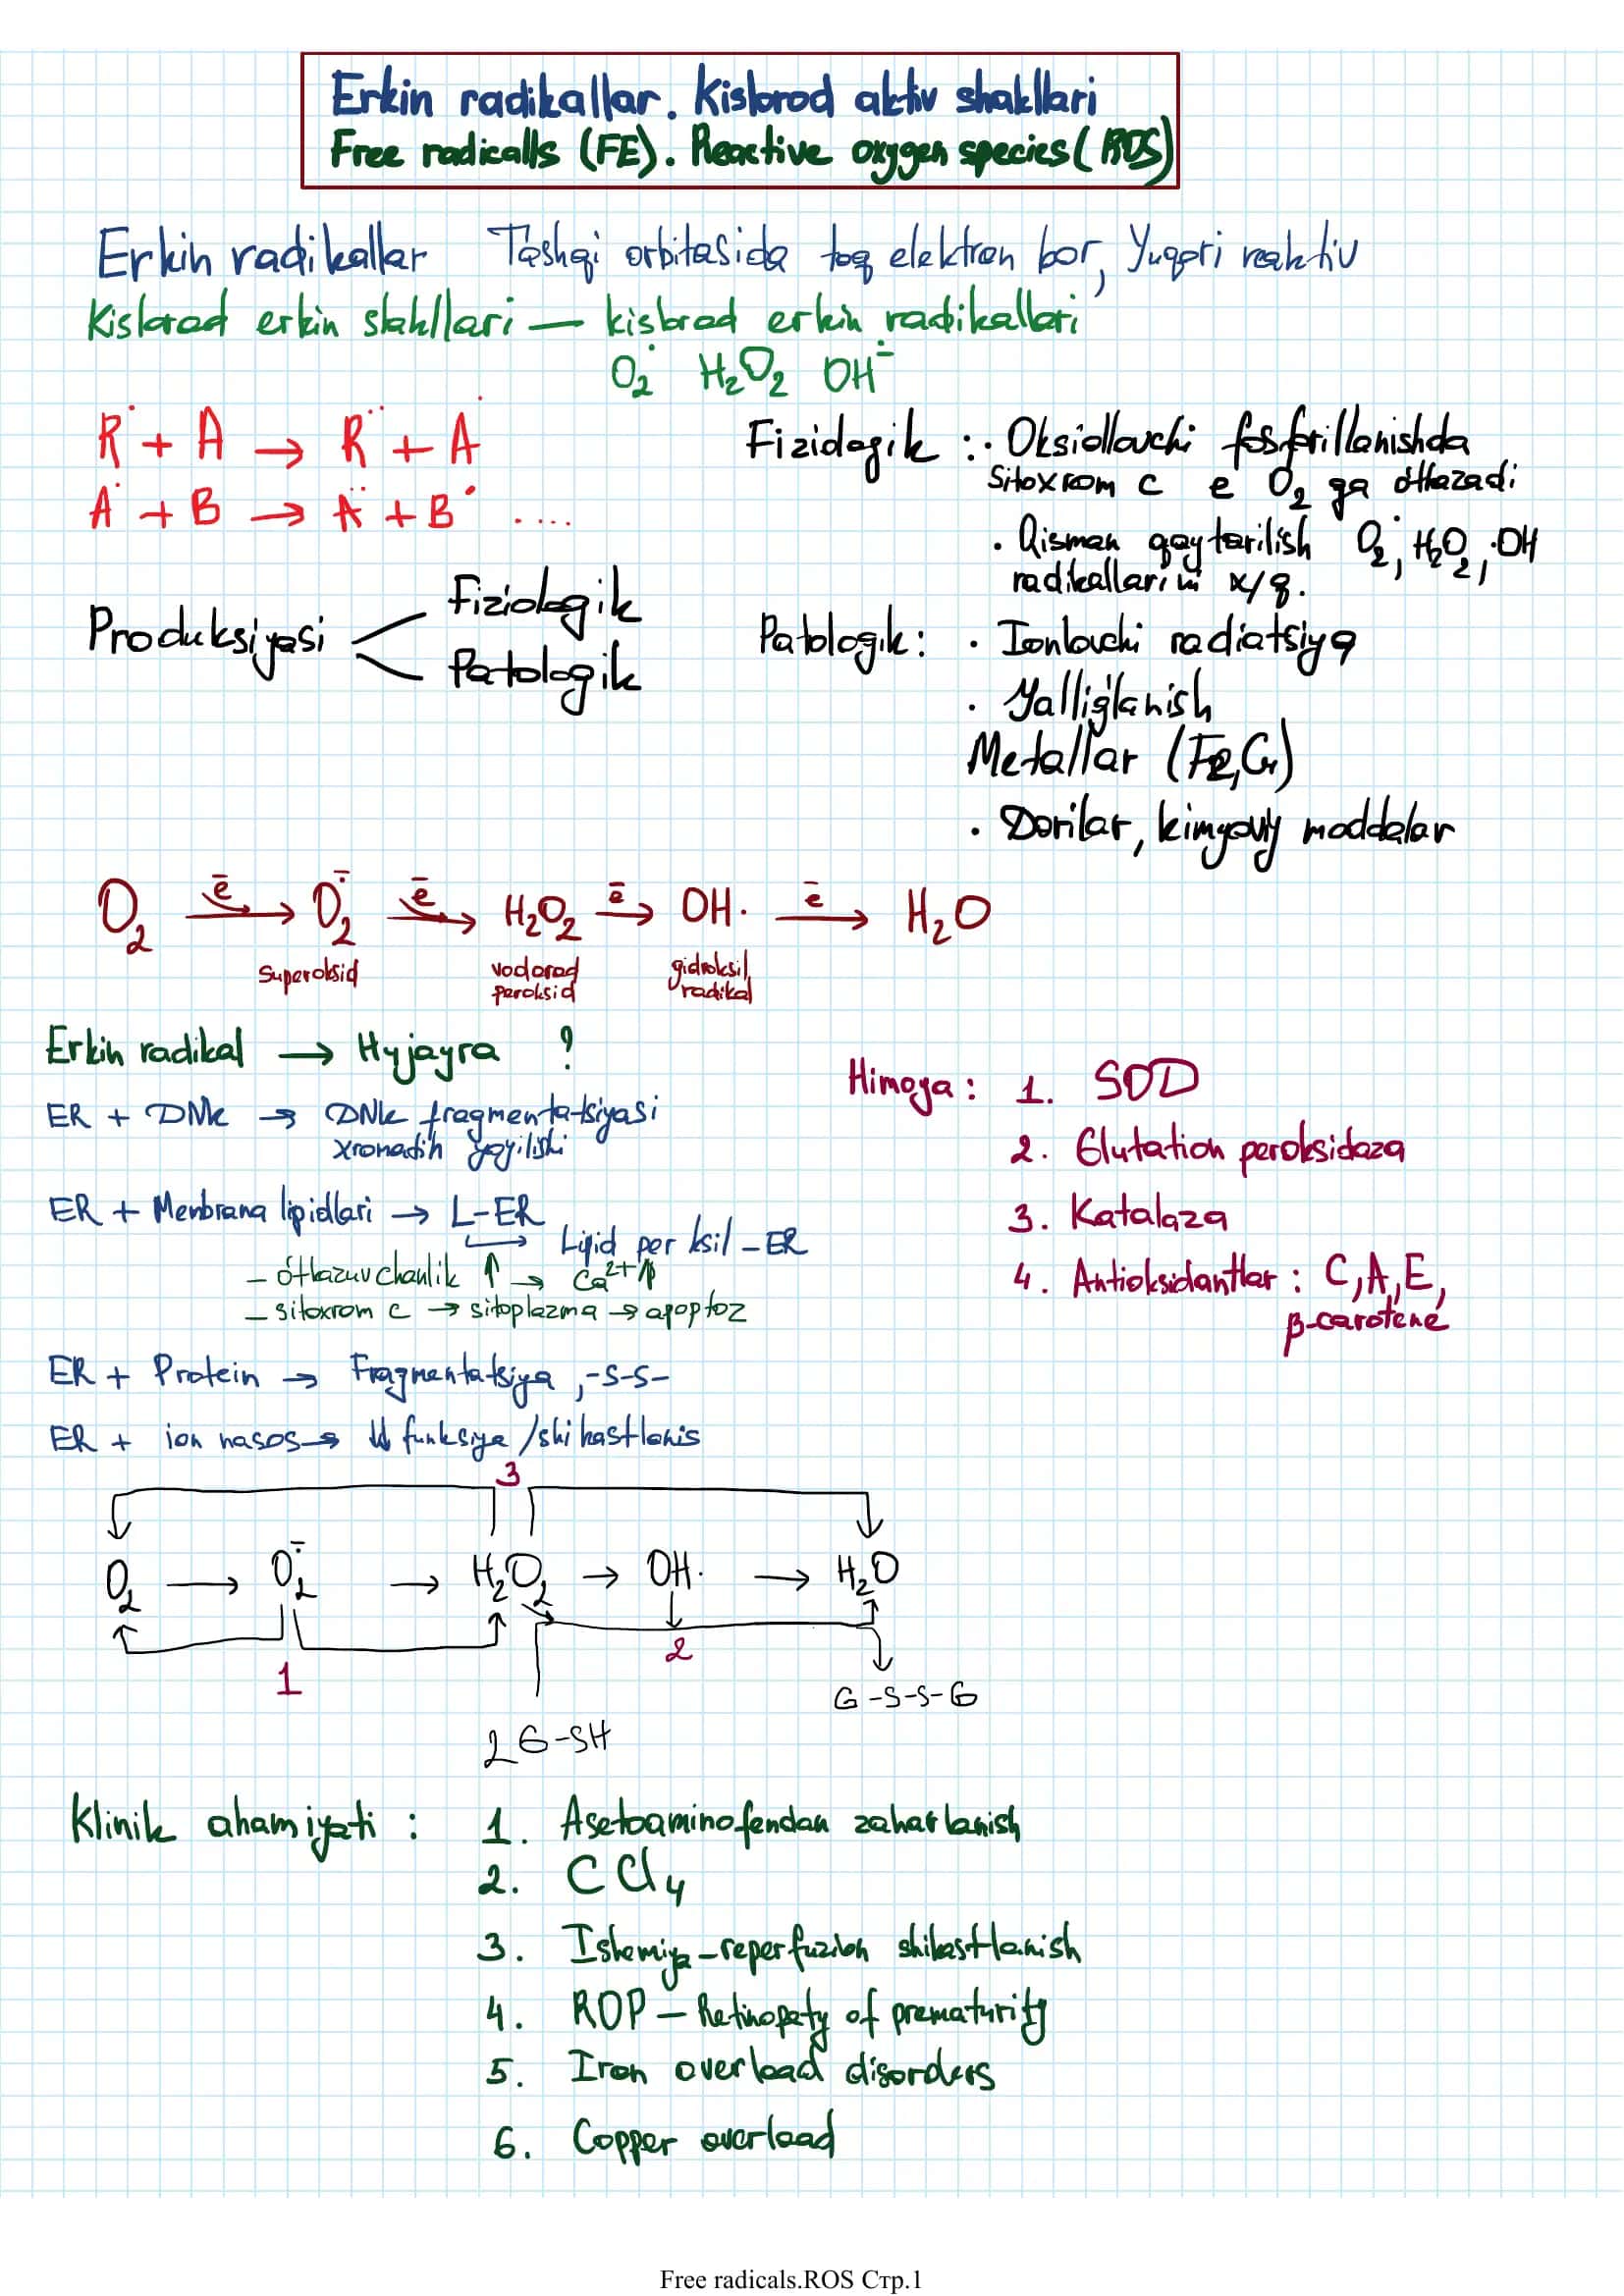 Erkin radikallar. Kislorod aktiv shakllari
Free radicalls (FE). Reactive oxygen species (ROS)
Erkin radikallar Tashqi orbitasida toq elektron bor, Yuqori reaktiv
Kislorod erkin shakllari — kislorod erkin radikallari
O₂˙ H₂O₂ OH∸
R˙ + A → R¨ + A˙
A˙ + B → A¨ + B˙ ....
Produksiyasi
Fiziologik
Patologik
Fiziologik : · Oksidlovchi fosforillanishda
Sitoxrom c e O₂ ga o'tkazadi
· Qisman qaytarilish O₂∸, H₂O₂, ·OH
radikallarini x/q.
Patologik: · Ionlovchi radiatsiya
· Yallig'lanish
Metallar (Fe, Cu)
· Dorilar, kimyoviy moddalar
O₂ —ē→ O₂∸ —ē→ H₂O₂ —ē→ OH· —ē→ H₂O
Superoksid
vodorod peroksid
gidroksil radikal
Erkin radikal → Hyjayra ?
ER + DNK → DNK fragmentatsiyasi
xromatin yoyilishi
ER + Menbrana lipidlari → L-ER
Lipid per ksil – ER
– o'tkazuvchanlik ↑ → Ca²⁺⇑
– sitoxrom c → sitoplazma → apoptoz
ER + Protein → Fragmentatsiya, -S-S-
ER + ion nasos → ⇓ funksiya / shikastlanis
Himoya: 1. SOD
2. Glutation peroksidaza
3. Katalaza
4. Antioksidantlar : C, A, E,
β-carotene
3
O₂ → O₂∸ → H₂O₂ → OH· → H₂O
1
2
G-S-S-G
2 G-SH
Klinik ahamiyati : 1. Asetoaminofendan zaharlanish
2. CCl₄
3. Ishemiya-reperfuzion shikastlanish
4. ROP – Retinopaty of prematurity
5. Iron overload disorders
6. Copper overload
Free radicals.ROS Стр.1